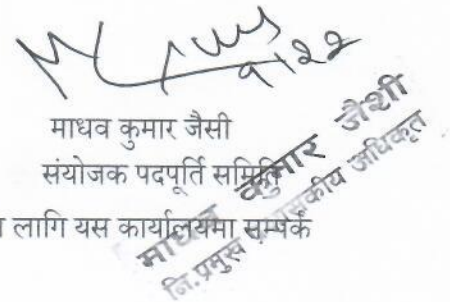 ९/२२
माधव कुमार जैसी
संयोजक पदपूर्ति समिति
लागि यस कार्यालयमा सम्पर्क
माधव कुमार जैशी
नि.प्रमुख प्रशासकीय अधिकृत